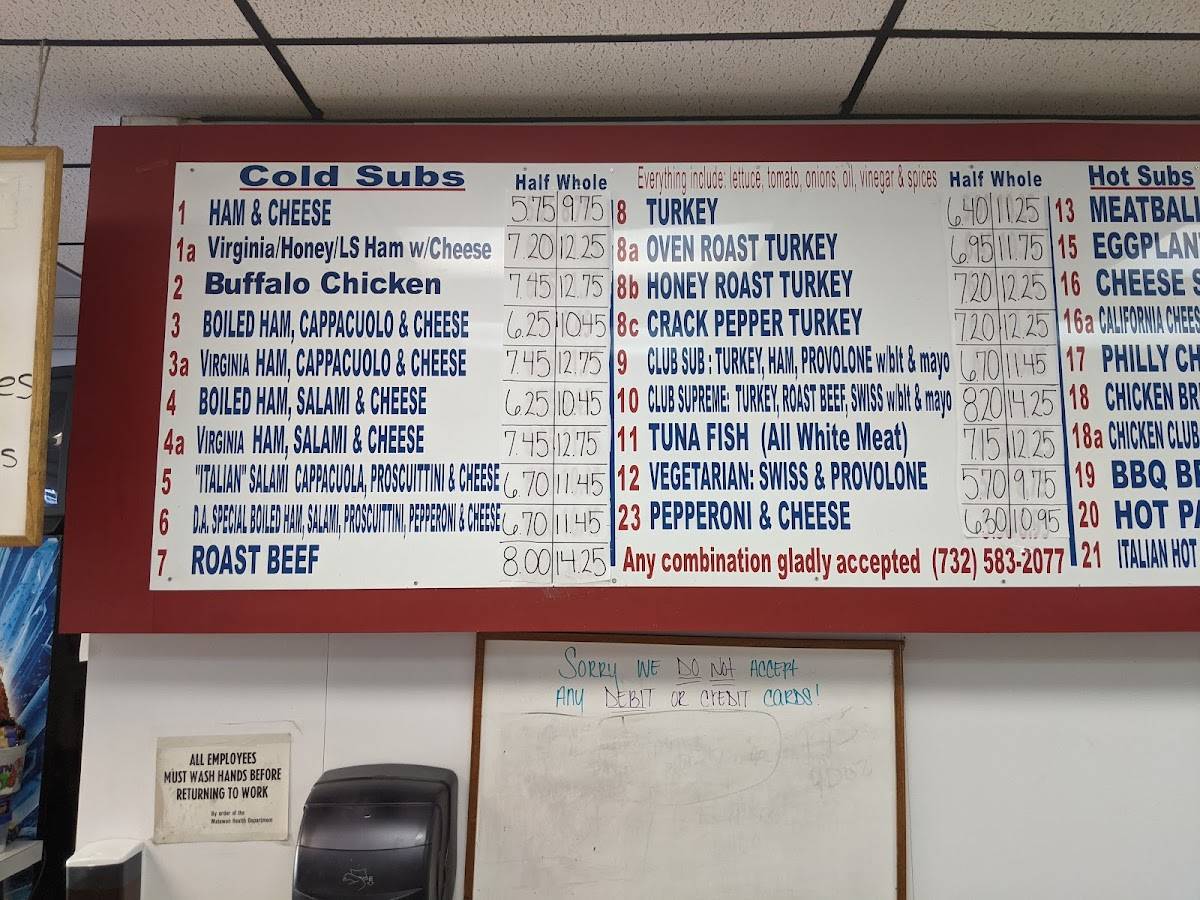 Cold Subs
Half Whole
1 HAM & CHEESE 5.75 9.75
1a Virginia/Honey/LS Ham w/Cheese 7.20 12.25
2 Buffalo Chicken 7.45 12.75
3 BOILED HAM, CAPPACUOLO & CHEESE 6.25 10.45
3a VIRGINIA HAM, CAPPACUOLO & CHEESE 7.45 12.75
4 BOILED HAM, SALAMI & CHEESE 6.25 10.45
4a VIRGINIA HAM, SALAMI & CHEESE 7.45 12.75
5 "ITALIAN" SALAMI CAPPACUOLA, PROSCUITTINI & CHEESE 6.70 11.45
6 D.A. SPECIAL BOILED HAM, SALAMI, PROSCUITTINI, PEPPERONI & CHEESE 6.70 11.45
7 ROAST BEEF 8.00 14.25
Everything include: lettuce, tomato, onions, oil, vinegar & spices
Half Whole
8 TURKEY 6.40 11.25
8a OVEN ROAST TURKEY 6.95 11.75
8b HONEY ROAST TURKEY 7.20 12.25
8c CRACK PEPPER TURKEY 7.20 12.25
9 CLUB SUB : TURKEY, HAM, PROVOLONE w/blt & mayo 6.70 11.45
10 CLUB SUPREME: TURKEY, ROAST BEEF, SWISS w/blt & mayo 8.20 14.25
11 TUNA FISH (All White Meat) 7.15 12.25
12 VEGETARIAN: SWISS & PROVOLONE 5.70 9.75
23 PEPPERONI & CHEESE 6.30 10.95
Any combination gladly accepted (732) 583-2077
Hot Subs
13 MEATBALL
15 EGGPLAN
16 CHEESE S
16a CALIFORNIA CHEES
17 PHILLY CH
18 CHICKEN BR
18a CHICKEN CLUB
19 BBQ BE
20 HOT PA
21 ITALIAN HOT
es
s
SORRY WE DO NOT ACCEPT
ANY DEBIT OR CREDIT CARDS!
ALL EMPLOYEES
MUST WASH HANDS BEFORE
RETURNING TO WORK
By order of the
Matawan Health Department